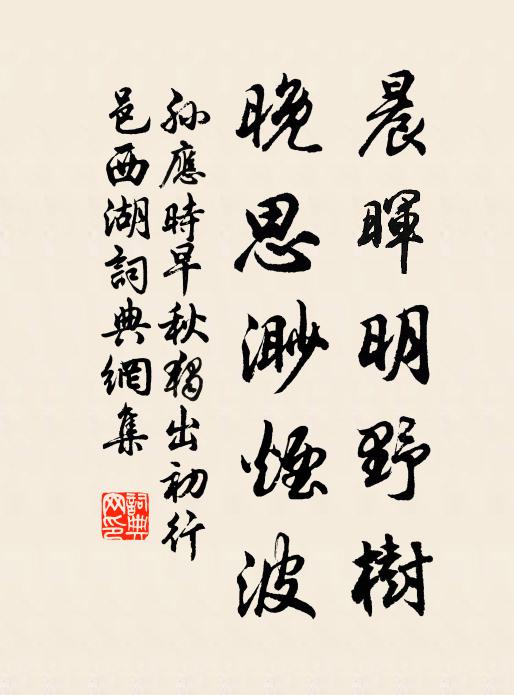 晨暉明野樹
晚思渺煙波
孫應時早秋獨出初行
邑西湖詞典網集
詞典
网印